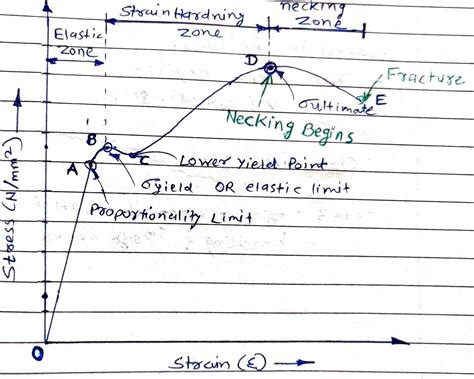 Elastic
Zone
Strain Hardning
zone
necking
Zone
D
Fracture
E
σultimate
Necking Begins
B
A
C
Lower Yield Point
σyield OR elastic limit
Proportionality Limit
Stress (N/mm²)
O
Strain (ε)